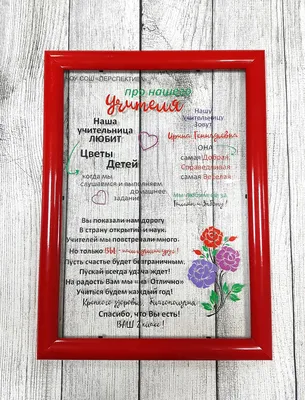 ОУ СОШ «ПЕРСПЕКТИВ
про нашего
Учителя
Наша
учительница
ЛЮБИТ
Цветы
Детей
когда мы
слушаемся и выполняем
домашнее
задание
Нашу
Учительницу
Зовут
Ирина Геннадьевна
ОНА
самая Добрая
Справедливая
самая Веселая
мы любим её за
Вы показали нам дорогу
В страну открытий и наук.
Учителей мы повстречали много.
Но только ВЫ -
Пусть счастье будет безграничным.
Пускай всегда удача ждет!
На радость Вам мы «на Отлично»
Учиться будем каждый год!
Крепкого здоровья, благополучия
Спасибо, что Вы есть!
ВАШ 2 класс!